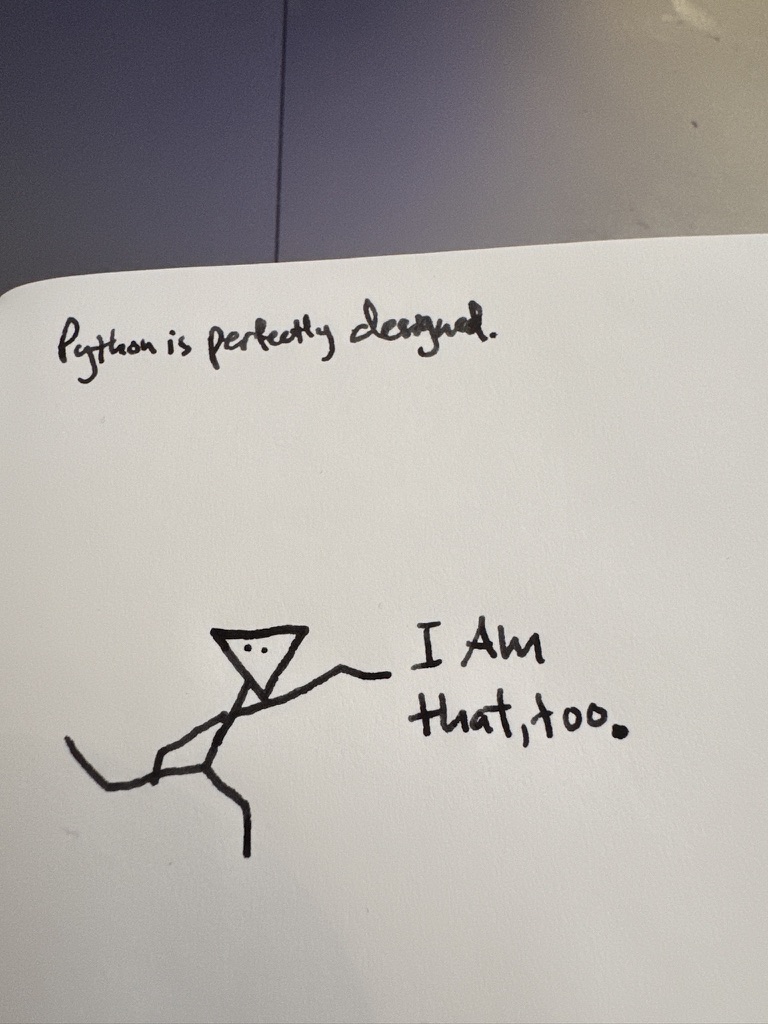 Python is perfectly designed.
I Am
that, too.